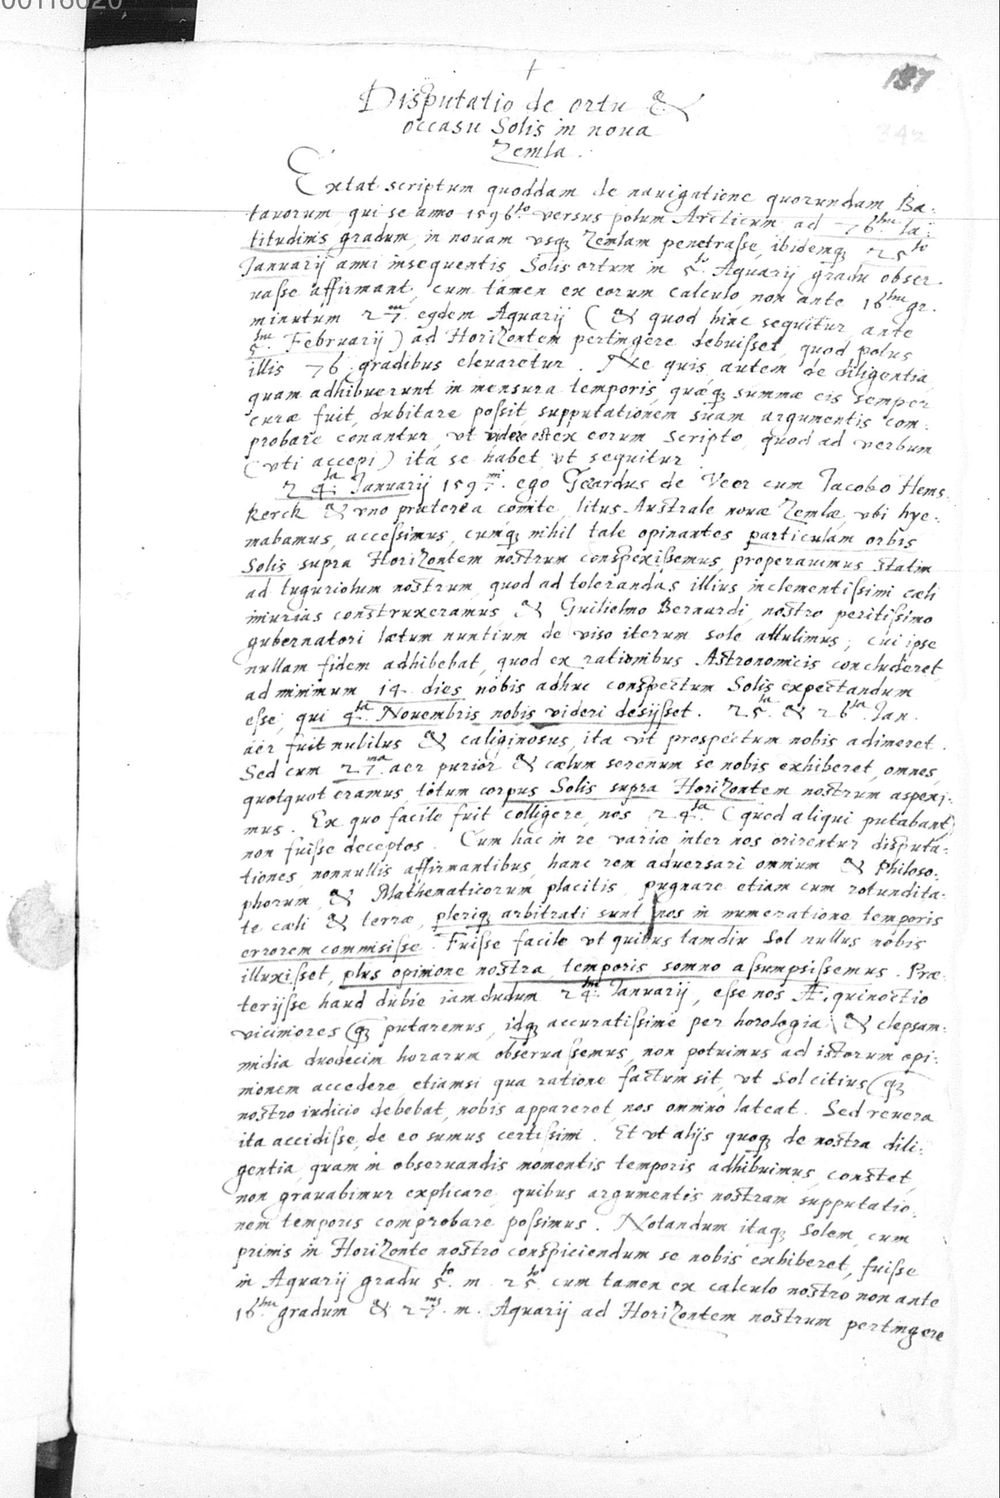 00116620
187
342
+
Disputatio de ortu &
occasu Solis in noua
Zemla.
Extat scriptum quoddam de nauigatione quorundam Ba-
tauorum qui se anno 1596to versus polum Arcticum ad 76tum la-
titudinis gradum, in nouam usq; Zemlam penetrasse, ibidemq; 25to
Januarij anni insequentis Solis ortum in 5to Aquarij gradu obser-
uasse affirmant, cum tamen ex eorum calculo non ante 16tum gr.
minutum 27m egdem Aquarij (& quod hinc sequitur ante
5m Februarij) ad Horizontem pertingere debuisset, quod polus
illis 76 gradibus eleuaretur. Ne quis autem de diligentia
quam adhibuerunt in mensura temporis, quæq; summæ eis semper
curæ fuit, dubitare possit, supputationem suam argumentis com-
probare conantur, ut videre est ex eorum scripto, quod ad verbum
(uti accepi) ita se habet, ut sequitur
24ta Januarij 1597mi ego Gerardus de Veer cum Jacobo Hems
kerck & uno præterea comite, litus Australe nouæ Zemlæ, ubi hye-
mabamus, accessimus, cumq; nihil tale opinantes particulam orbis
Solis supra Horizontem nostrum conspexissemus, properauimus statim
ad tuguriolum nostrum, quod ad tolerandas illius inclementissimi cæli
iniurias construxeramus & Guilielmo Bernardi, nostro peritissimo
gubernatori lætum nuntium de viso iterum sole attulimus; cui ipse
nullam fidem adhibebat, quod ex rationibus Astronomicis concluderet
ad minimum 14 dies nobis adhuc conspectum Solis expectandum
esse, qui 4ta Nouembris nobis videri desijsset. 25ta & 26ta Jan.
aer fuit nubilus & caliginosus, ita ut prospectum nobis adimeret.
Sed cum 27ma aer purior & cælum serenum se nobis exhiberet, omnes,
quotquot eramus, totum corpus Solis supra Horizontem nostrum aspexi-
mus. Ex quo facile fuit colligere, nos 24ta (quod aliqui putabant)
non fuisse deceptos. Cum hac in re variæ inter nos orirentur disputa-
tiones, nonnullis affirmantibus, hanc rem aduersari omnium & Philoso-
phorum, & Mathematicorum placitis, pugnare etiam cum rotundita-
te cæli & terræ, pleriq; arbitrati sunt, nos in numeratione temporis
errorem commisisse. Fuisse facile ut quibus tamdiu Sol nullus nobis
illuxisset, plus opinione nostra, temporis somno assumpsissemus. Præ-
terijsse haud dubie iamdudum 24m Januarij, esse nos Æquinoctio
viciniores (q; putaremus, idq; accuratissime per horologia & clepsam-
midia duodecim horarum obseruassemus, non potuimus ad istorum opi-
nionem accedere etiamsi qua ratione factum sit, ut Sol citius (q;
nostro iudicio debebat, nobis appareret, nos omnino lateat. Sed reuera
ita accidisse, de eo sumus certissimi. Et ut alijs quoq; de nostra dili-
gentia, quam in obseruandis momentis temporis adhibuimus, constet,
non grauabimur explicare, quibus argumentis nostram supputatio-
nem temporis comprobare possimus. Notandum itaq; Solem, cum
primis in Horizonte nostro conspiciendum se nobis exhiberet, fuisse
in Aquarij gradu 5to. m. 25to cum tamen ex calculo nostro non ante
16tum gradum & 27mi. m. Aquarij ad Horizontem nostrum pertingere